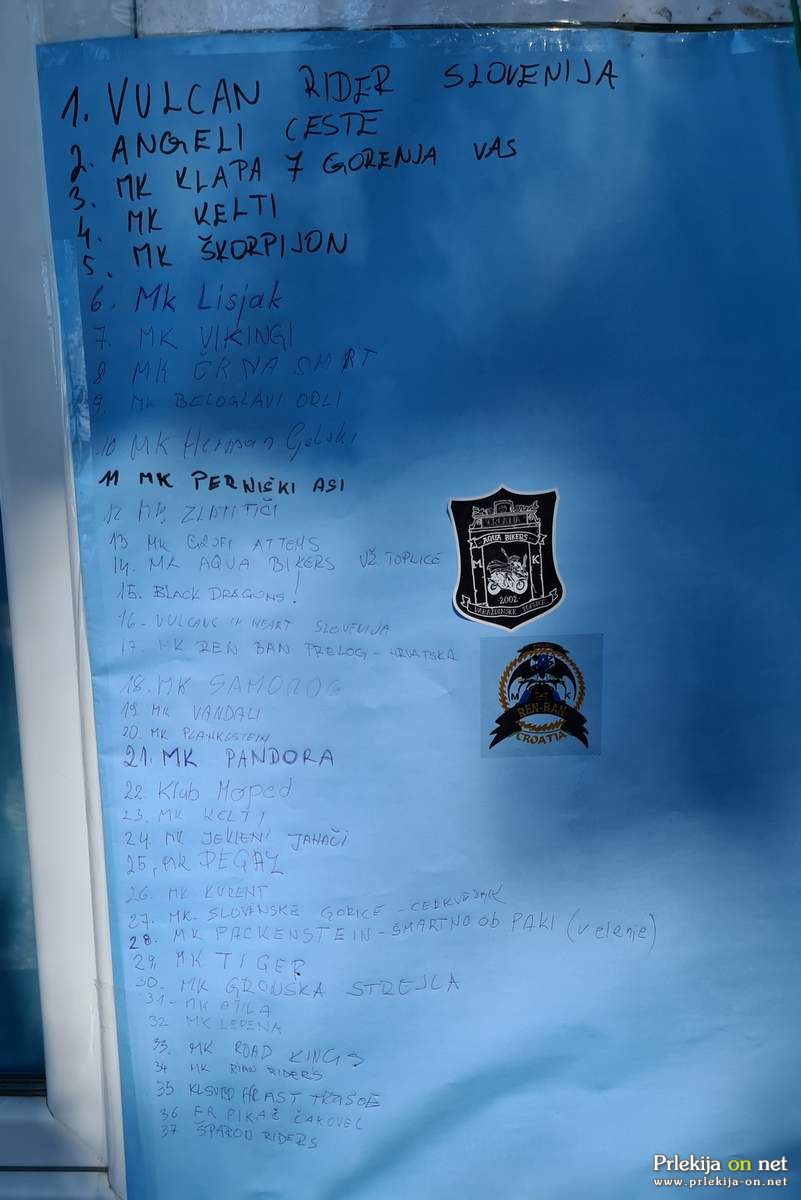 1. VULCAN RIDER SLOVENIJA
2. ANGELI CESTE
3. MK KLAPA 7 GORENJA VAS
4. MK KELTI
5. MK ŠKORPIJON
6. Mk Lisjak
7. MK VIKINGI
8 MK ČRNA SMRT
9. MK BELOGLAVI ORLI
10 MK Herman Celski
11 MK PERNIŠKI ASI
12 MK ZLATITIČI
CROATIA
13 MK GROFI ATTEMS
AQUA BIKERS
14. MK AQUA BIKERS VŽ TOPLICE
M K
15. BLACK DRAGONS!
2002
VARAŽDINSKE TOPLICE
16- VULCANS IN HEART SLOVENIJA
17. MK REN BAN PRELOG - HRVATSKA
18. MK SAMOROG
M K
19. MK VANDALI
REN-BAN
20. MK PLANKSTEIN
CROATIA
21. MK PANDORA
22. Klub Moped
23. MK KELTI
24 MK JEKLENI JAHAČI
25. MK PEGAZ
26. MK KURENT
27. MK. SLOVENSKE GORICE - CERKVENJAK
28. MK PACKENSTEIN - ŠMARTNO Ob PAKI (velenje)
29. MK TIGER
30. MK GROMSKA STREJLA
31- MK ATILA
32 MK LEPENA
33. MK ROAD KINGS
34 MK RIDERS
35 HRAST
36 PIKAČ ČAKOVEC
37 RIDERS
Prlekija on net
www.prlekija-on.net